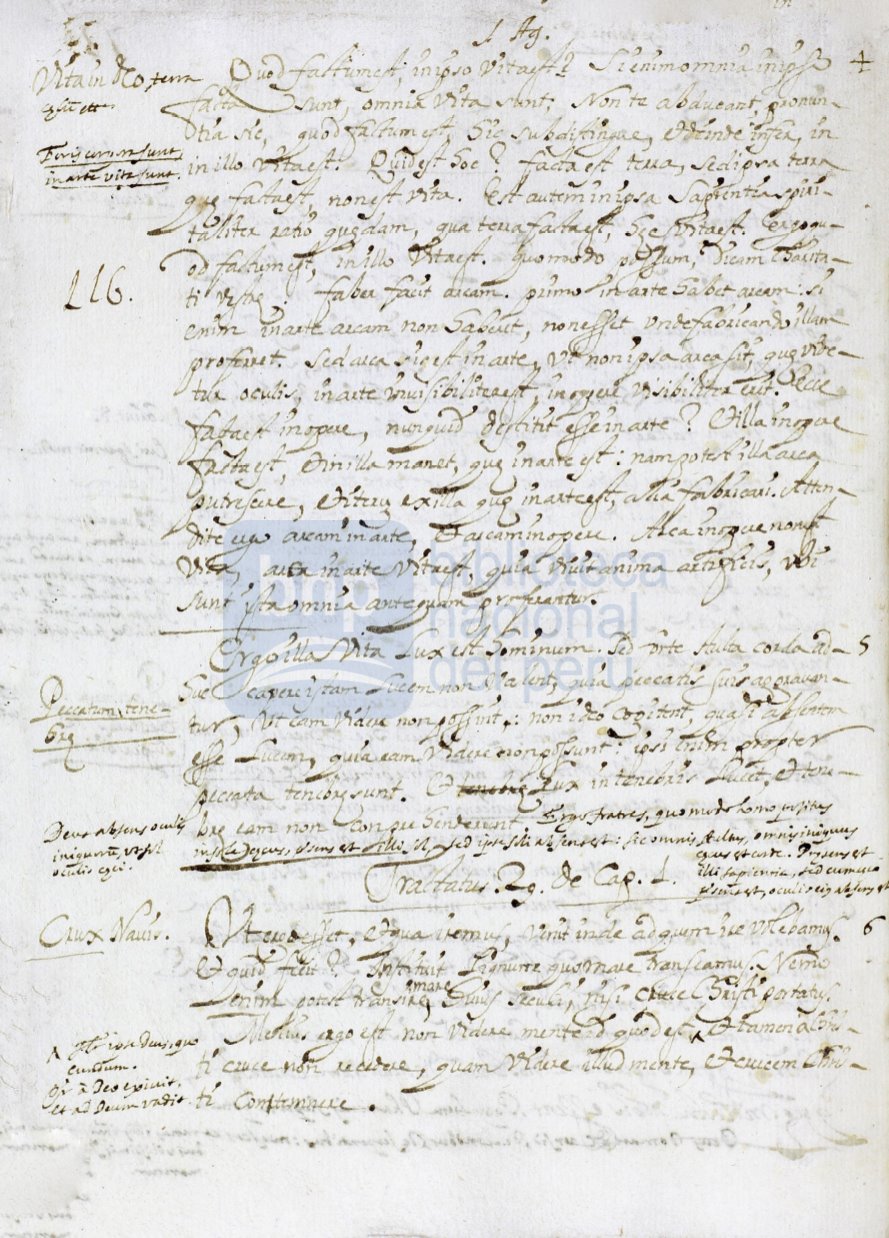 1 Ag.
Vita in deo, terra
Foris cum sunt
in arte vita sunt.
Quod factum est, in ipso vita est? Si enim omnia in ipso 4
facta sunt, omnia vita sunt. Non te abducant, pronun-
tia sic, quod factum est, hic subdistingue, et deinde infer, in
in illo vita est. Quid est hoc? facta est terra, sed ipsa terra
que facta est, non est vita. Est autem in ipsa Sapientia spiri-
taliter ratio quędam, qua terra facta est, hęc vita est. Ergo qu-
116.
od factum est, in illo vita est. quomodo possum, dicam Charita-
ti vestrę. faber facit arcam. primo in arte habet arcam: si
enim in arte arcam non haberet, non esset unde fabricando illam
proferret. sed arca sic est in arte, ut non ipsa arca sit, quę vide-
tur oculis, in arte invisibiliter est, in opere visibiliter erit. Ecce
facta est in opere, nunquid destitit esse in arte? Et illa in opere
facta est, et in illa manet, quę in arte est: nam potest illa arca
putrescere, et iterũ ex illa quę in arte est, alia fabricari. Atten-
dite ergo arcam in arte, et arcam in opere. Arca in opere non est
vita, arca in arte vita est, quia vivit anima artificis, ubi
sunt ista omnia antequam proferantur.
Ergo illa vita Lux est hominum. Sed forte stulta corda ad- 5
huc capere istam Lucem non valent, quia peccatis suis agravan-
Peccatum, tene-
brę
tur, ut eam videre non possint: non ideo cogitent, quasi absentem
esse Lucem, quia eam videre non possunt: ipsi enim propter
peccata tenebrę sunt. Et tenebrę Lux in tenebris Lucet, et tene-
brę eam non conprehenderunt. Ergo fratres, quomodo homo positus
Deus absens oculis
iniquorũ, ut sol
oculis cęci.
in sole cęcus, pręsens est illi sol, sed ipse soli absens est: sic omnis stultus, omnis iniquus
cęcus est corde. Pręsens est
illi sapientia, sed cum cęco
pręsens est, oculis eius absens est
Tractatus 2us. de Cap. 1.
Crux Navis.
Ut ergo esset, et qua iremus, venit inde ad quem ire volebamus. 6
Et quid fecit? Instituit Lignum quo mare transeamus. Nemo
enim potest transire mare huius seculi, nisi cruce Christi portatus.
Melius ergo est non videre mente id quod est, et tamen a Chris-
ti cruce non recedere, quam videre illud mente, et crucem Chris-
ti contemnere.
ipse Deus, quo
eundum.
à Deo exivit,
et ad Deum vadit